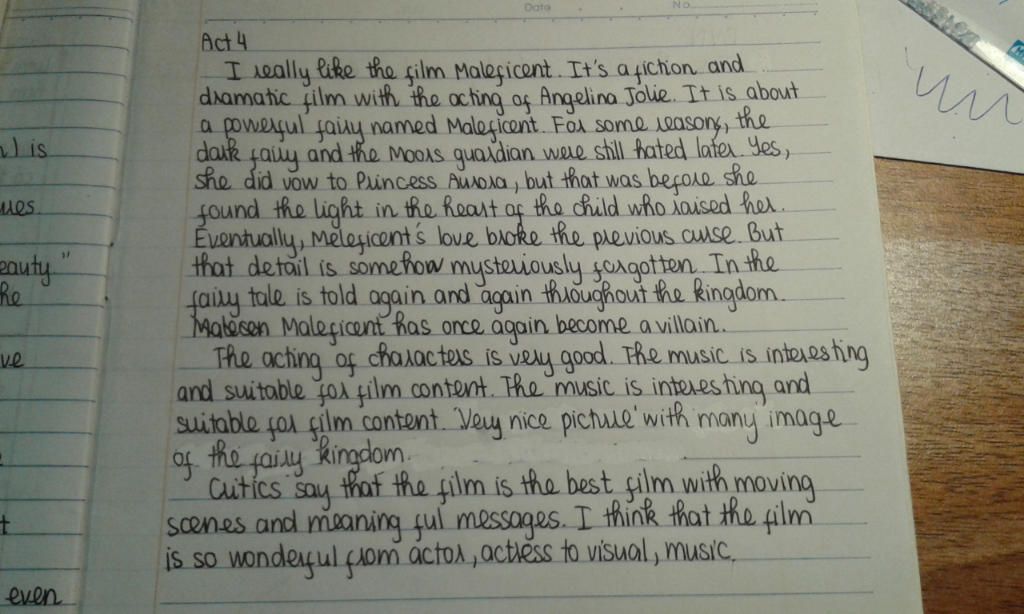 Date No
Act 4
I really like the film Maleficent. It's a fiction and
dramatic film with the acting of Angelina Jolie. It is about
a powerful fairy named Maleficent. For some reasons, the
n) is
dark fairy and the Moors guardian were still hated later. Yes,
she did vow to Princess Aurora, but that was before she
ues
found the light in the heart of the child who raised her.
Eventually, Meleficent's love broke the previous curse. But
eauty."
that detail is somehow mysteriously forgotten. In the
he
fairy tale is told again and again throughout the kingdom.
Maleficent has once again become a villain.
ve
The acting of characters is very good. The music is interesting
and suitable for film content. The music is interesting and
suitable for film content. 'Very nice picture' with many image
of the fairy kingdom.
Critics say that the film is the best film with moving
scenes and meaning ful messages. I think that the film
t
is so wonderful from actor, actress to visual, music.
even